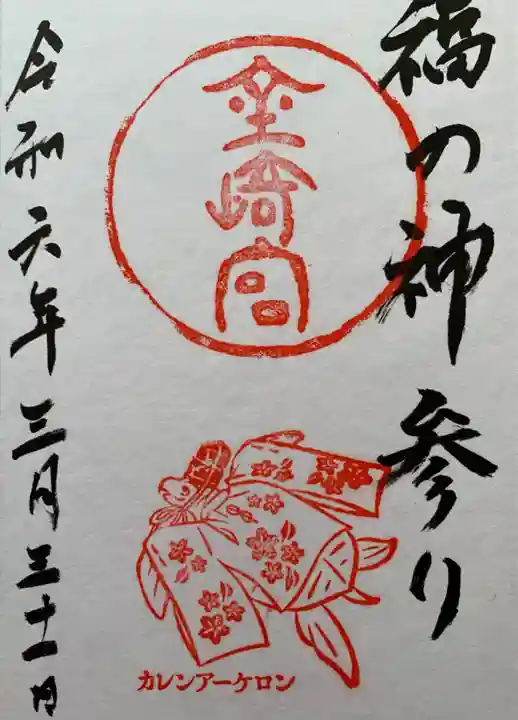 福の神参り
金崎宮
カレンアーケロン
令和六年三月三十一日